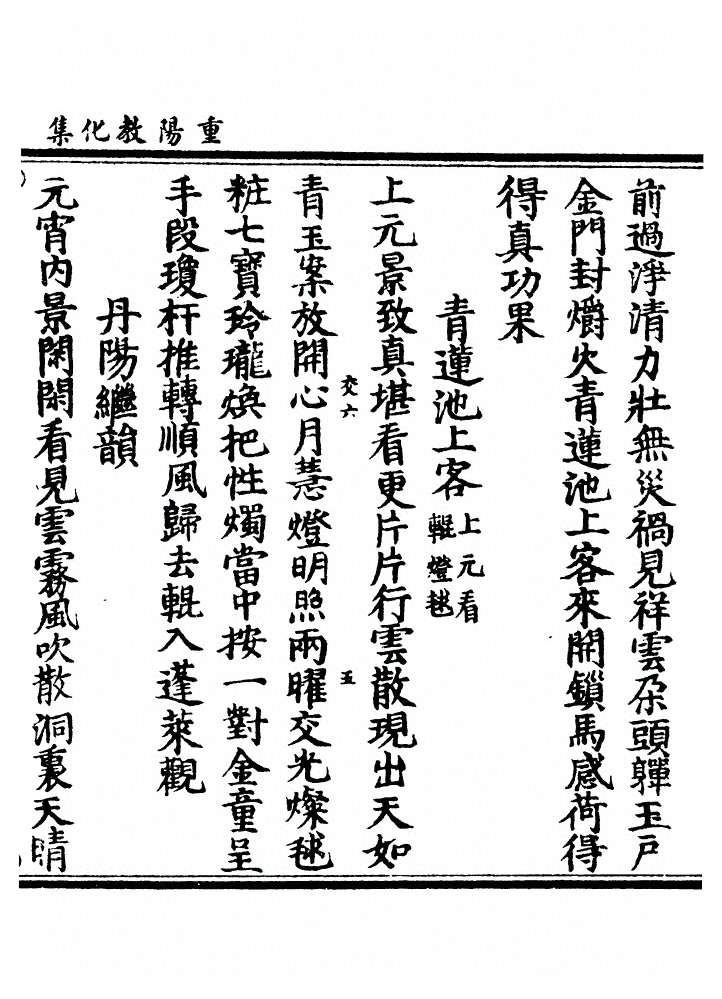 重陽教化集
前過淨清力壯無災禍見祥雲朵頭軃玉戶
金門封爝火青蓮池上客來開鎖馬感荷得
得真功果
青蓮池上客上元看
輥燈毬
上元景致真堪看更片片行雲散現出天如
青玉案放開心月慧燈明照兩曜交光燦毬
交六
五
粧七寶玲瓏煥把性燭當中按一對金童呈
手段瓊杆推轉順風歸去輥入蓬萊觀
丹陽繼韻
元宵內景閑閑看見雲霧風吹散洞裏天晴